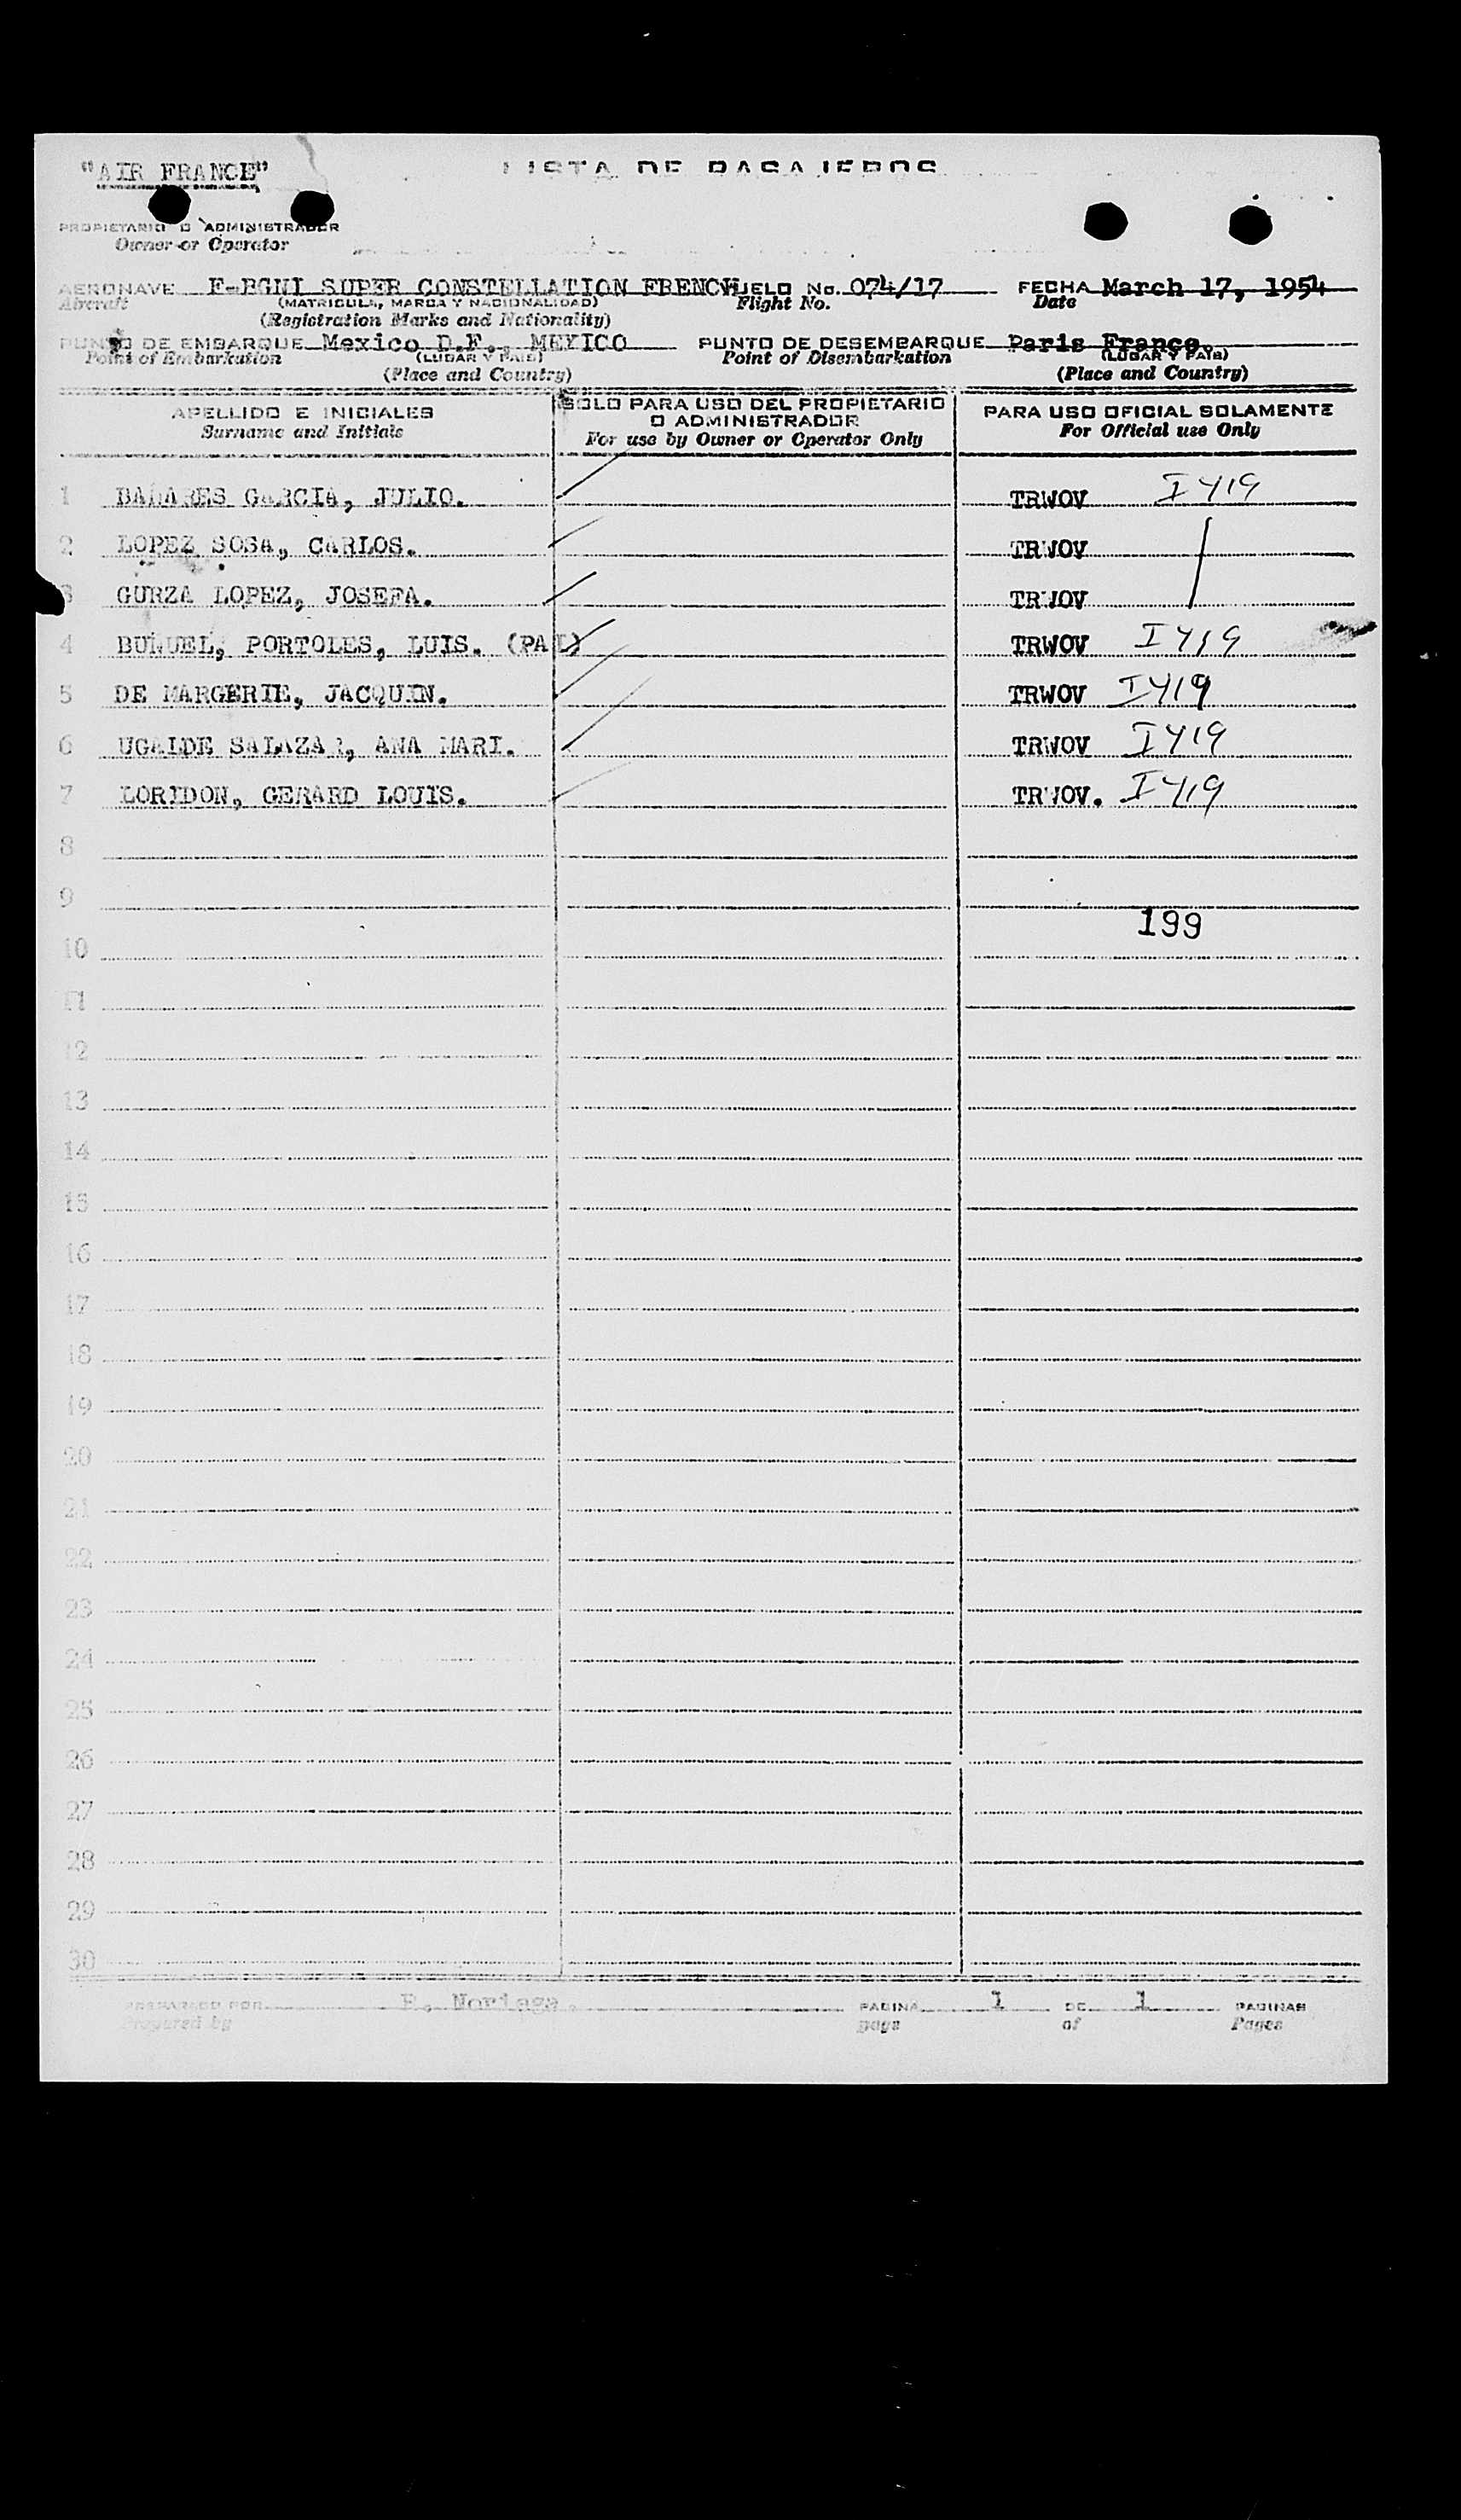 "AIR FRANCE"
LISTA DE PASAJEROS
PROPIETARIO O ADMINISTRADOR
Owner or Operator
AERONAVE F-BGNI SUPER CONSTELLATION FRENCH VUELO No. 074/17 FECHA March 17, 1954
Aircraft (MATRICULA, MARCA Y NACIONALIDAD) Flight No. Date
(Registration Marks and Nationality)
PUNTO DE EMBARQUE Mexico D.F., MEXICO PUNTO DE DESEMBARQUE Paris France.
Point of Embarkation (LUGAR Y PAIS) Point of Disembarkation (LUGAR Y PAIS)
(Place and Country) (Place and Country)
APELLIDO E INICIALES SOLO PARA USO DEL PROPIETARIO PARA USO OFICIAL SOLAMENTE
O ADMINISTRADOR
Surname and Initials For use by Owner or Operator Only For Official use Only
1 GARCIA, JULIO. TRWOV I 419
2 LOPEZ SOSA, CARLOS. TRWOV
3 GURZA LOPEZ, JOSEFA. TRWOV
4 BUÑUEL, PORTOLES, LUIS. TRWOV I 419
5 DE MARGERIE, JACQUIN. TRWOV I 419
6 UGALDE SALAZAR, ANA MARI. TRWOV I 419
7 LORIDON, GERARD LOUIS. TRWOV. I 419
8
9
199
10
11
12
13
14
15
16
17
18
19
20
21
22
23
24
25
26
27
28
29
30
PREPARADO POR F. Noriega. PAGINA 1 DE 1 PAGINAS
Prepared by page of Pages